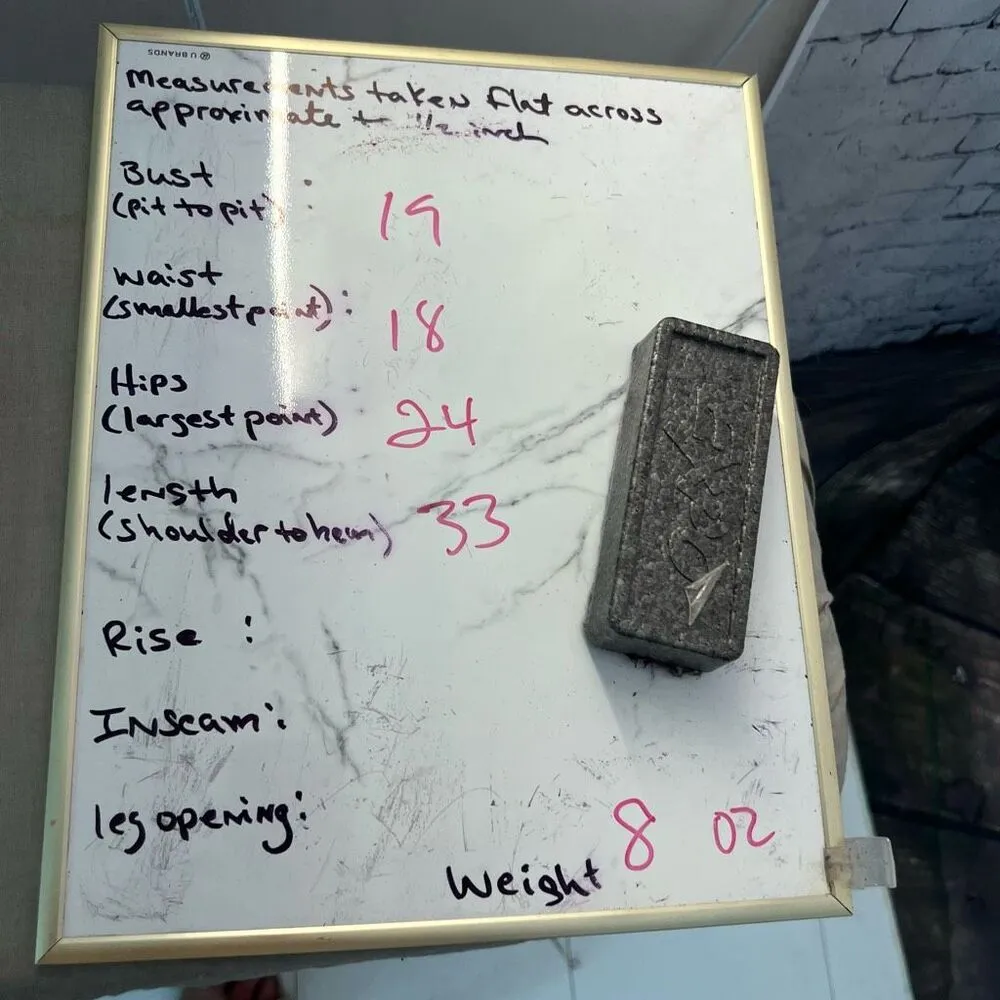 U BRANDS
Measurements taken flat across
approximate +- 1/2 inch
Bust
(pit to pit) :
19
Waist
(smallest point) :
18
Hips
(largest point)
24
length
(shoulder to hem)
33
Rise :
Inseam :
leg opening :
8 oz
Weight
EXPO